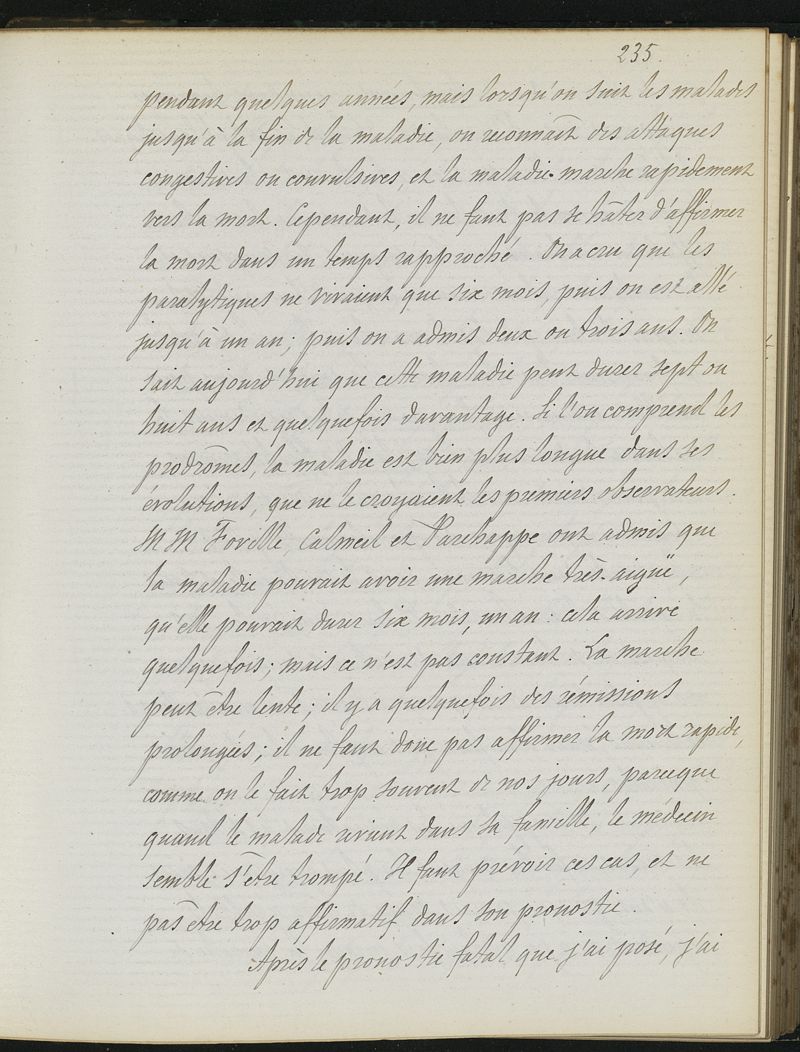 235.
pendant quelques années, mais lorsqu'on suit les malades
jusqu'à la fin de la maladie, on reconnaît des attaques
congestives ou convulsives, et la maladie marche rapidement
vers la mort. Cependant, il ne faut pas se hâter d'affirmer
la mort dans un temps rapproché. On a cru que les
paralytiques ne vivaient que six mois, puis on est allé
jusqu'à un an; puis on a admis deux ou trois ans. On
sait aujourd'hui que cette maladie peut durer sept ou
huit ans et quelquefois davantage. Si l'on comprend les
prodrômes, la maladie est bien plus longue dans ses
évolutions, que ne le croyaient les premiers observateurs.
MM Foville, Calmeil et Parchappe ont admis que
la maladie pouvait avoir une marche très-aiguë,
qu'elle pouvait durer six mois, un an : cela arrive
quelquefois; mais ce n'est pas constant. La marche
peut être lente; il y a quelquefois des rémissions
prolongées; il ne faut donc pas affirmer la mort rapide,
comme on le fait trop souvent de nos jours, parceque
quand le malade revient dans sa famille, le médecin
semble s'être trompé. Il faut prévoir ces cas, et ne
pas être trop affirmatif dans son pronostic.
Après le pronostic fatal que j'ai posé, j'ai